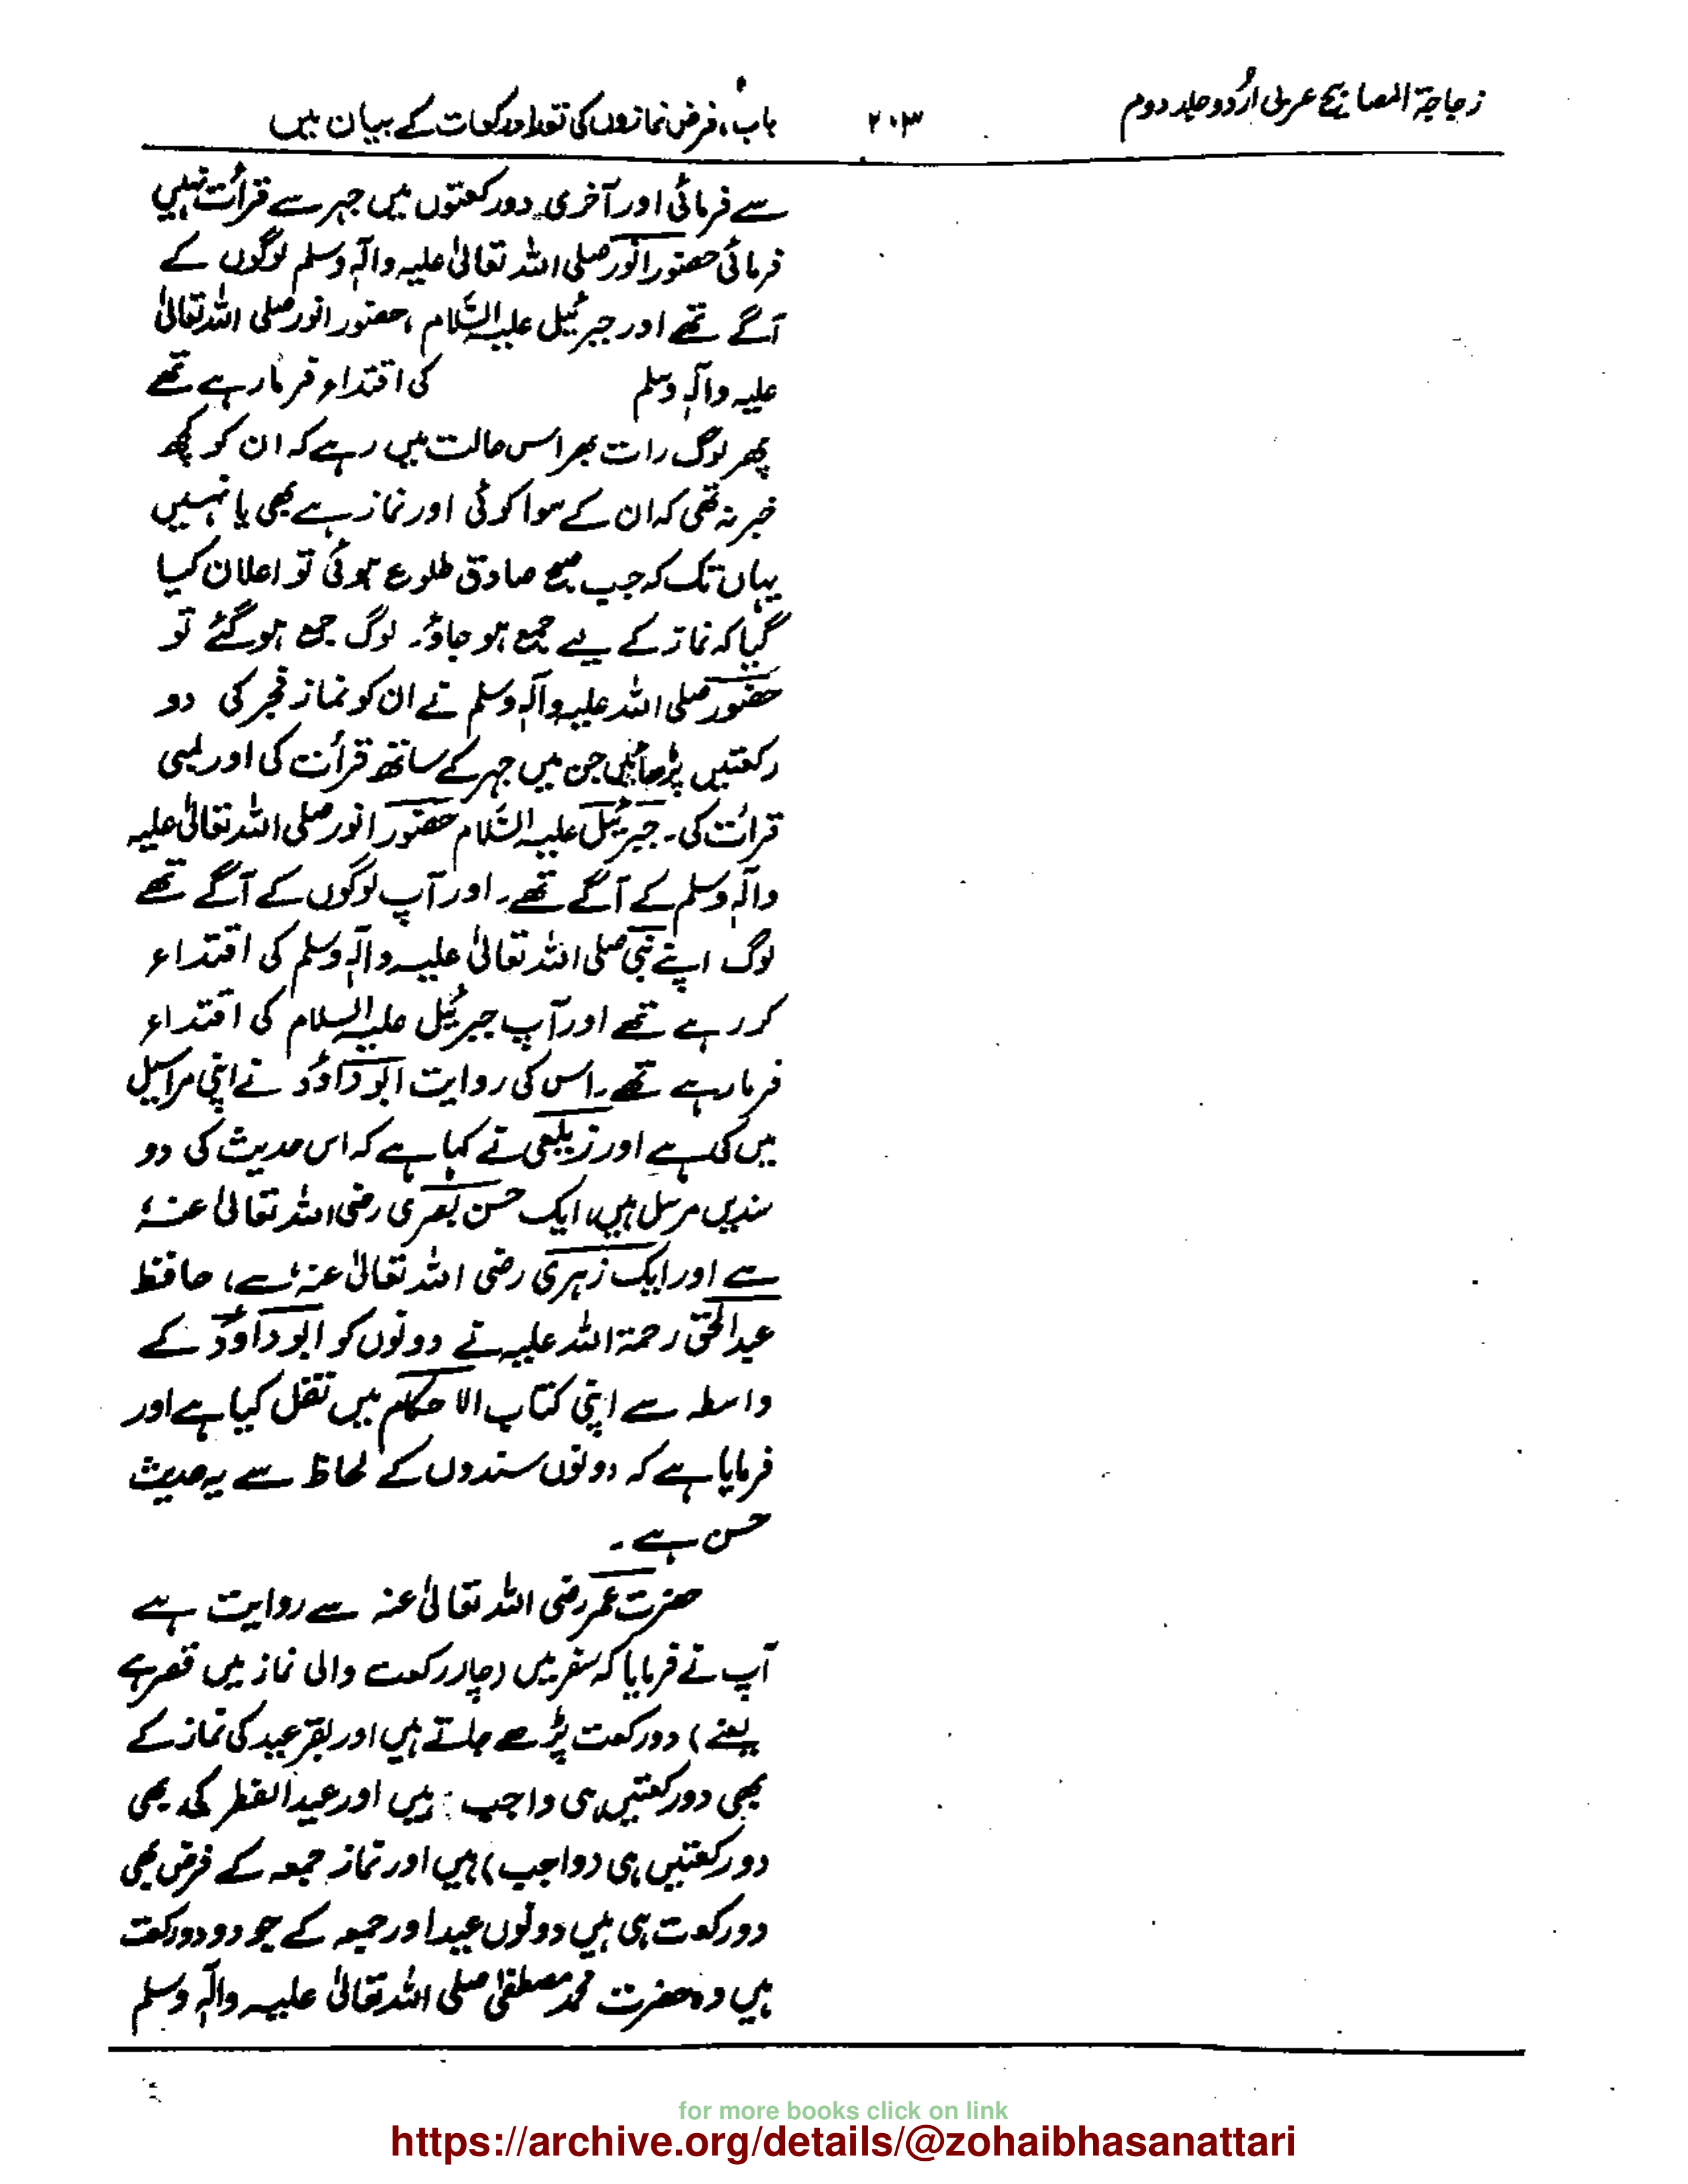 زجاجۃ المصابیح عربی اُردو جلد دوم ۲۰۳ باب، فرض نمازوں کی تعداد رکعات کے بیان میں
سے فرمائی اور آخری دو رکعتوں میں جہر سے قرأت نہیں
فرمائی حضور انور صلی اللہ تعالیٰ علیہ وآلہٖ وسلم لوگوں کے
آگے تھے اور جبرئیل علیہ السَّلام، حضور انور صلی اللہ تعالیٰ
علیہ وآلہٖ وسلم کی اقتداء فرما رہے تھے
پھر لوگ رات بھر اس حالت میں رہے کہ ان کو کچھ
خبر نہ تھی کہ ان کے سوا کوئی اور نماز ہے بھی یا نہیں
یہاں تک کہ جب صبح صادق طلوع ہوئی تو اعلان کیا
گیا کہ نماز کے لیے جمع ہو جاؤ۔ لوگ جمع ہو گئے تو
حضور صلی اللہ علیہ وآلہٖ وسلم نے ان کو نماز فجر کی دو
رکعتیں پڑھائیں جن میں جہر کے ساتھ قرأت کی اور لمبی
قرأت کی۔ جبرئیل علیہ السَّلام حضور انور صلی اللہ تعالیٰ علیہ
وآلہٖ وسلم کے آگے تھے۔ اور آپ لوگوں کے آگے تھے
لوگ اپنے نبی صلی اللہ تعالیٰ علیہ وآلہٖ وسلم کی اقتداء
کر رہے تھے اور آپ جبرئیل علیہ السلام کی اقتداء
فرما رہے تھے۔ اس کی روایت ابو داؤد نے اپنی مراسیل
میں کی ہے اور زیلعی نے کہا ہے کہ اس حدیث کی دو
سندیں مرسل ہیں، ایک حسن بصری رضی اللہ تعالیٰ عنہٗ
سے اور ایک زہری رضی اللہ تعالیٰ عنہٗ سے، حافظ
عبدالحق رحمۃ اللہ علیہ نے دونوں کو ابو داؤد کے
واسطہ سے اپنی کتاب الاحکام میں نقل کیا ہے اور
فرمایا ہے کہ دونوں سندوں کے لحاظ سے یہ حدیث
حسن ہے۔
حضرت عمر رضی اللہ تعالیٰ عنہ سے روایت ہے
آپ نے فرمایا کہ سفر میں (چار رکعت والی نماز میں قصر ہے
یعنے) دو رکعت پڑھے جاتے ہیں اور بقر عید کی نماز کے
بھی دو رکعتیں ہی واجب ہیں اور عید الفطر کی بھی
دو رکعتیں ہی (واجب) ہیں اور نماز جمعہ کے فرض بھی
دو رکعت ہی ہیں دونوں عید اور جمعہ کے جو دو دو رکعت
ہیں وہ حضرت محمد مصطفیٰ صلی اللہ تعالیٰ علیہ وآلہٖ وسلم
for more books click on link
https://archive.org/details/@zohaibhasanattari